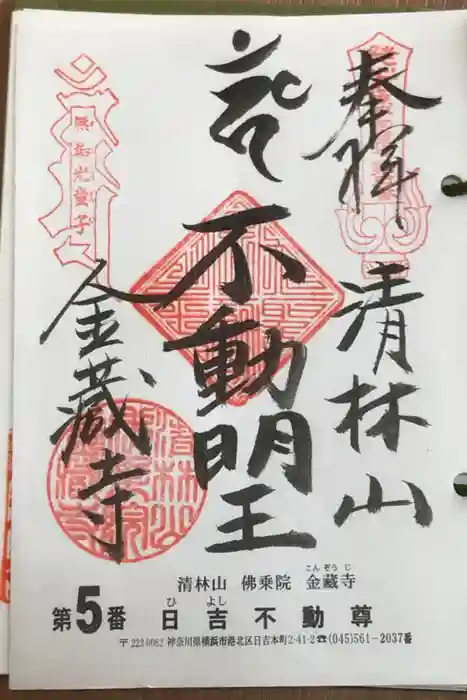 奉拝
清林山
不動明王
金藏寺
清林山 佛乗院 金藏寺
こんぞうじ
第5番 日吉不動尊
ひよし
〒223-0062 神奈川県横浜市港北区日吉本町2-41-2☎(045)561-2037番